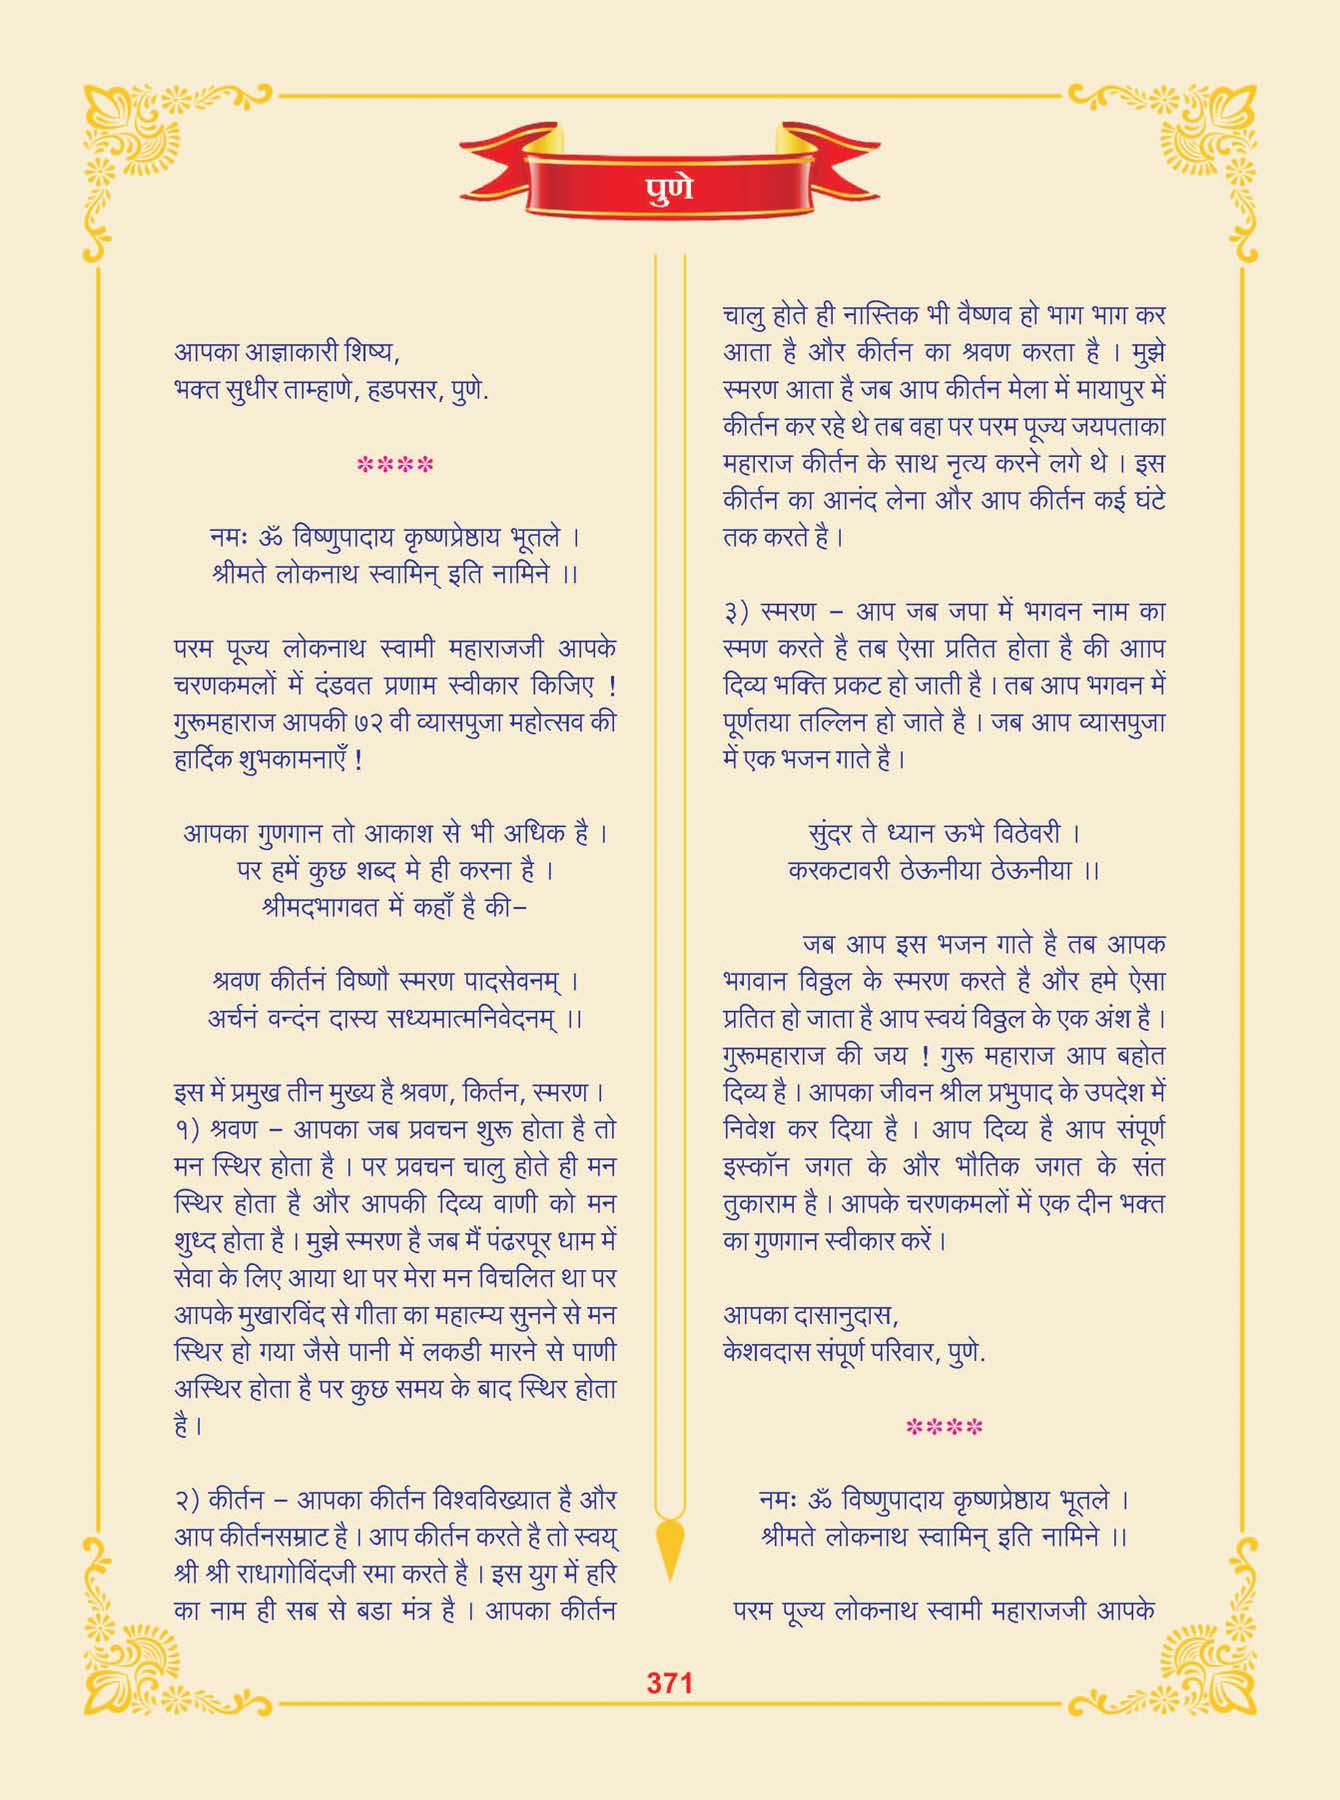 पुणे
आपका आज्ञाकारी शिष्य,
भक्त सुधीर ताम्हाणे, हडपसर, पुणे.
****
नमः ॐ विष्णुपादाय कृष्णप्रेष्ठाय भूतले ।
श्रीमते लोकनाथ स्वामिन् इति नामिने ।।
परम पूज्य लोकनाथ स्वामी महाराजजी आपके
चरणकमलों में दंडवत प्रणाम स्वीकार किजिए !
गुरूमहाराज आपकी ७२ वी व्यासपुजा महोत्सव की
हार्दिक शुभकामनाएँ !
आपका गुणगान तो आकाश से भी अधिक है ।
पर हमें कुछ शब्द मे ही करना है ।
श्रीमदभागवत में कहाँ है की–
श्रवण कीर्तनं विष्णौ स्मरण पादसेवनम् ।
अर्चनं वन्दंन दास्य सध्यमात्मनिवेदनम् ।।
इस में प्रमुख तीन मुख्य है श्रवण, किर्तन, स्मरण ।
१) श्रवण – आपका जब प्रवचन शुरू होता है तो
मन स्थिर होता है । पर प्रवचन चालु होते ही मन
स्थिर होता है और आपकी दिव्य वाणी को मन
शुध्द होता है । मुझे स्मरण है जब मैं पंढरपूर धाम में
सेवा के लिए आया था पर मेरा मन विचलित था पर
आपके मुखारविंद से गीता का महात्म्य सुनने से मन
स्थिर हो गया जैसे पानी में लकडी मारने से पाणी
अस्थिर होता है पर कुछ समय के बाद स्थिर होता
है ।
२) कीर्तन – आपका कीर्तन विश्वविख्यात है और
आप कीर्तनसम्राट है । आप कीर्तन करते है तो स्वय्
श्री श्री राधागोविंदजी रमा करते है । इस युग में हरि
का नाम ही सब से बडा मंत्र है । आपका कीर्तन
चालु होते ही नास्तिक भी वैष्णव हो भाग भाग कर
आता है और कीर्तन का श्रवण करता है । मुझे
स्मरण आता है जब आप कीर्तन मेला में मायापुर में
कीर्तन कर रहे थे तब वहा पर परम पूज्य जयपताका
महाराज कीर्तन के साथ नृत्य करने लगे थे । इस
कीर्तन का आनंद लेना और आप कीर्तन कई घंटे
तक करते है ।
३) स्मरण – आप जब जपा में भगवन नाम का
स्मण करते है तब ऐसा प्रतित होता है की आाप
दिव्य भक्ति प्रकट हो जाती है । तब आप भगवन में
पूर्णतया तल्लिन हो जाते है । जब आप व्यासपुजा
में एक भजन गाते है ।
सुंदर ते ध्यान ऊभे विठेवरी ।
करकटावरी ठेऊनीया ठेऊनीया ।।
जब आप इस भजन गाते है तब आपक
भगवान विठ्ठल के स्मरण करते है और हमे ऐसा
प्रतित हो जाता है आप स्वयं विठ्ठल के एक अंश है ।
गुरूमहाराज की जय ! गुरू महाराज आप बहोत
दिव्य है । आपका जीवन श्रील प्रभुपाद के उपदेश में
निवेश कर दिया है । आप दिव्य है आप संपूर्ण
इस्कॉन जगत के और भौतिक जगत के संत
तुकाराम है । आपके चरणकमलों में एक दीन भक्त
का गुणगान स्वीकार करें ।
आपका दासानुदास,
केशवदास संपूर्ण परिवार, पुणे.
****
नमः ॐ विष्णुपादाय कृष्णप्रेष्ठाय भूतले ।
श्रीमते लोकनाथ स्वामिन् इति नामिने ।।
परम पूज्य लोकनाथ स्वामी महाराजजी आपके
371